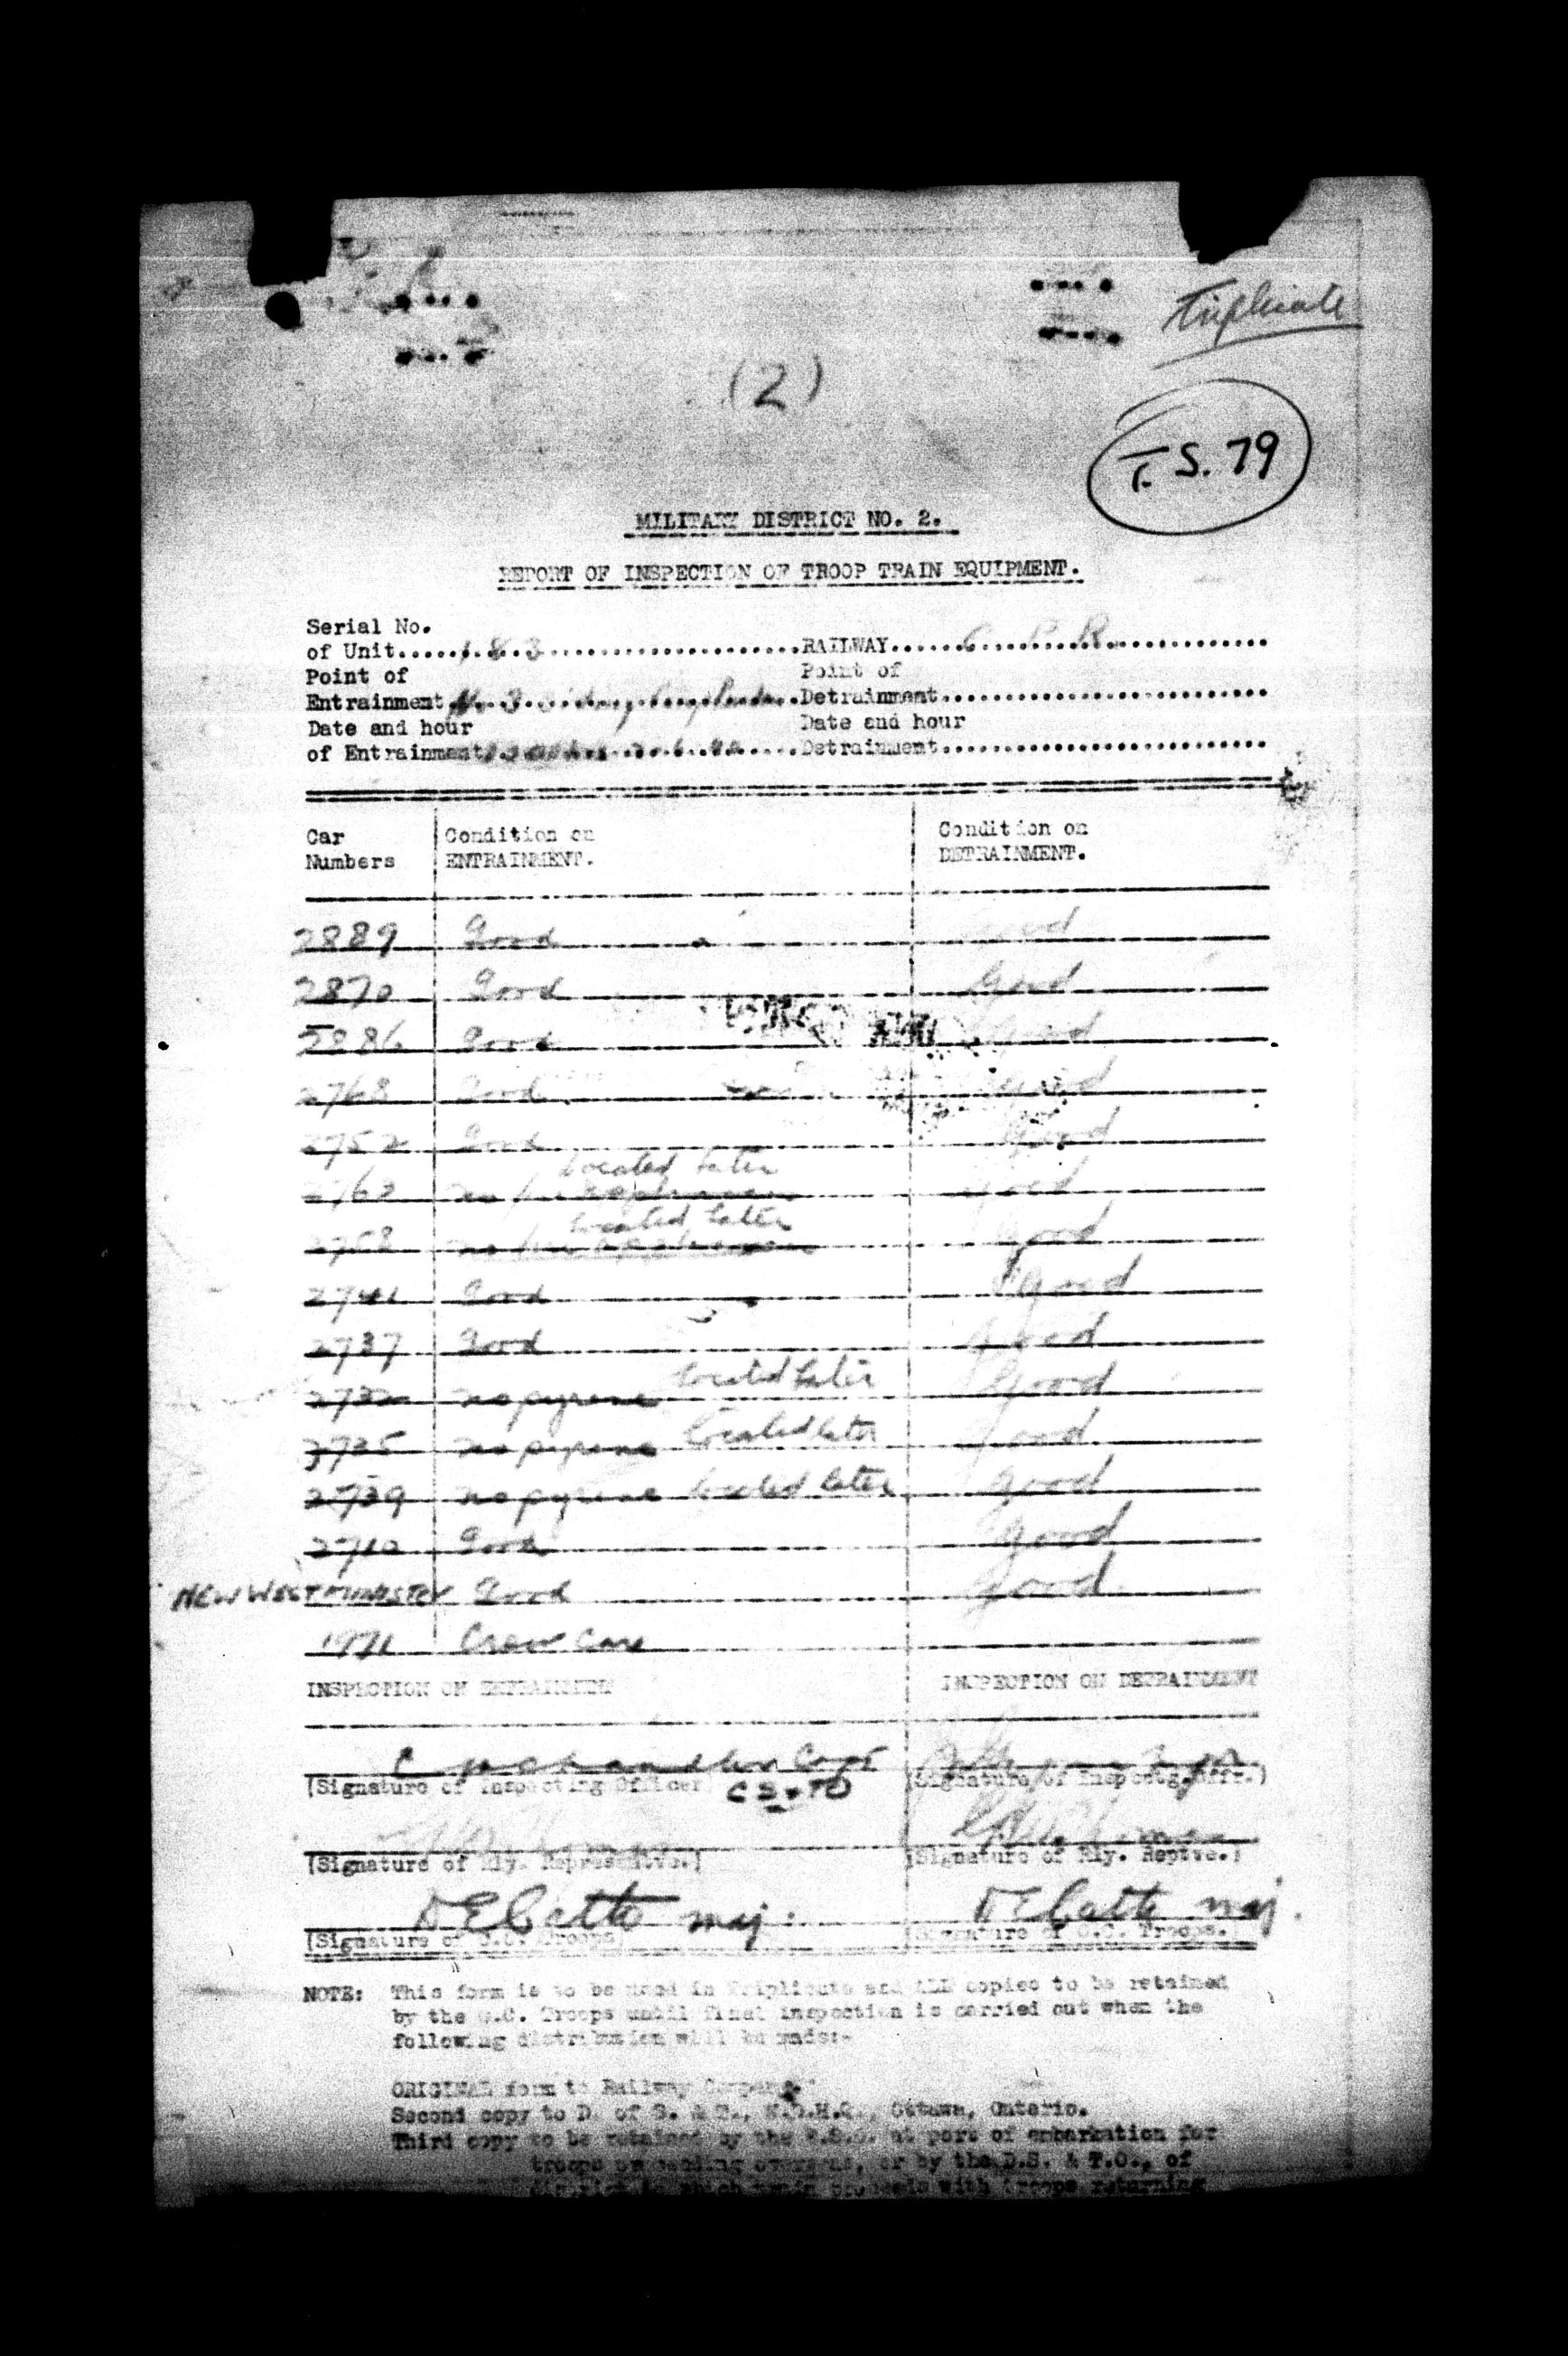 Triplicate
(2)
T.S. 79
MILITARY DISTRICT NO. 2.
REPORT OF INSPECTION OF TROOP TRAIN EQUIPMENT.
Serial No.
of Unit.....183.....RAILWAY.....C.P.R.....
Point of Point of
Entrainment No. 3 Siding, Detrainment.....
Date and hour Date and hour
of Entrainment Detrainment.....
Car Condition on Condition on
Numbers ENTRAINMENT. DETRAINMENT.
2889 Good Good
2870 Good Good
Good Good
2768 Good Good
2752 Good Good
Located Later
no fire Good
Located Later
2758 no fire Good
2741 Good Good
2737 Good Good
no pyrene Located Later Good
2735 no pyrene Located later Good
2739 no pyrene Located later Good
2710 Good Good
NEW WESTMINSTER Good Good
1971 Crew Car
INSPECTION ON ENTRAINMENT INSPECTION ON DETRAINMENT
Capt
(Signature of Inspecting Officer (Signature of Inspectg. Offr.)
(Signature of Rly. Represntve.) (Signature of Rly. Reptve.)
D E Catto maj. D E Catto maj.
(Signature of O.C. Troops) (Signature of O.C. Troops.
NOTE: This form is to be used in Triplicate and ALL copies to be retained
by the O.C. Troops until final inspection is carried out when the
following distribution will be made:-
ORIGINAL form to Railway Company.
Second copy to D. of S. & T., N.D.H.Q., Ottawa, Ontario.
Third copy to be retained by the E.S.O. at port of embarkation for
troops proceeding overseas, or by the D.S. & T.O., of
district in which train proceeds with troops returning